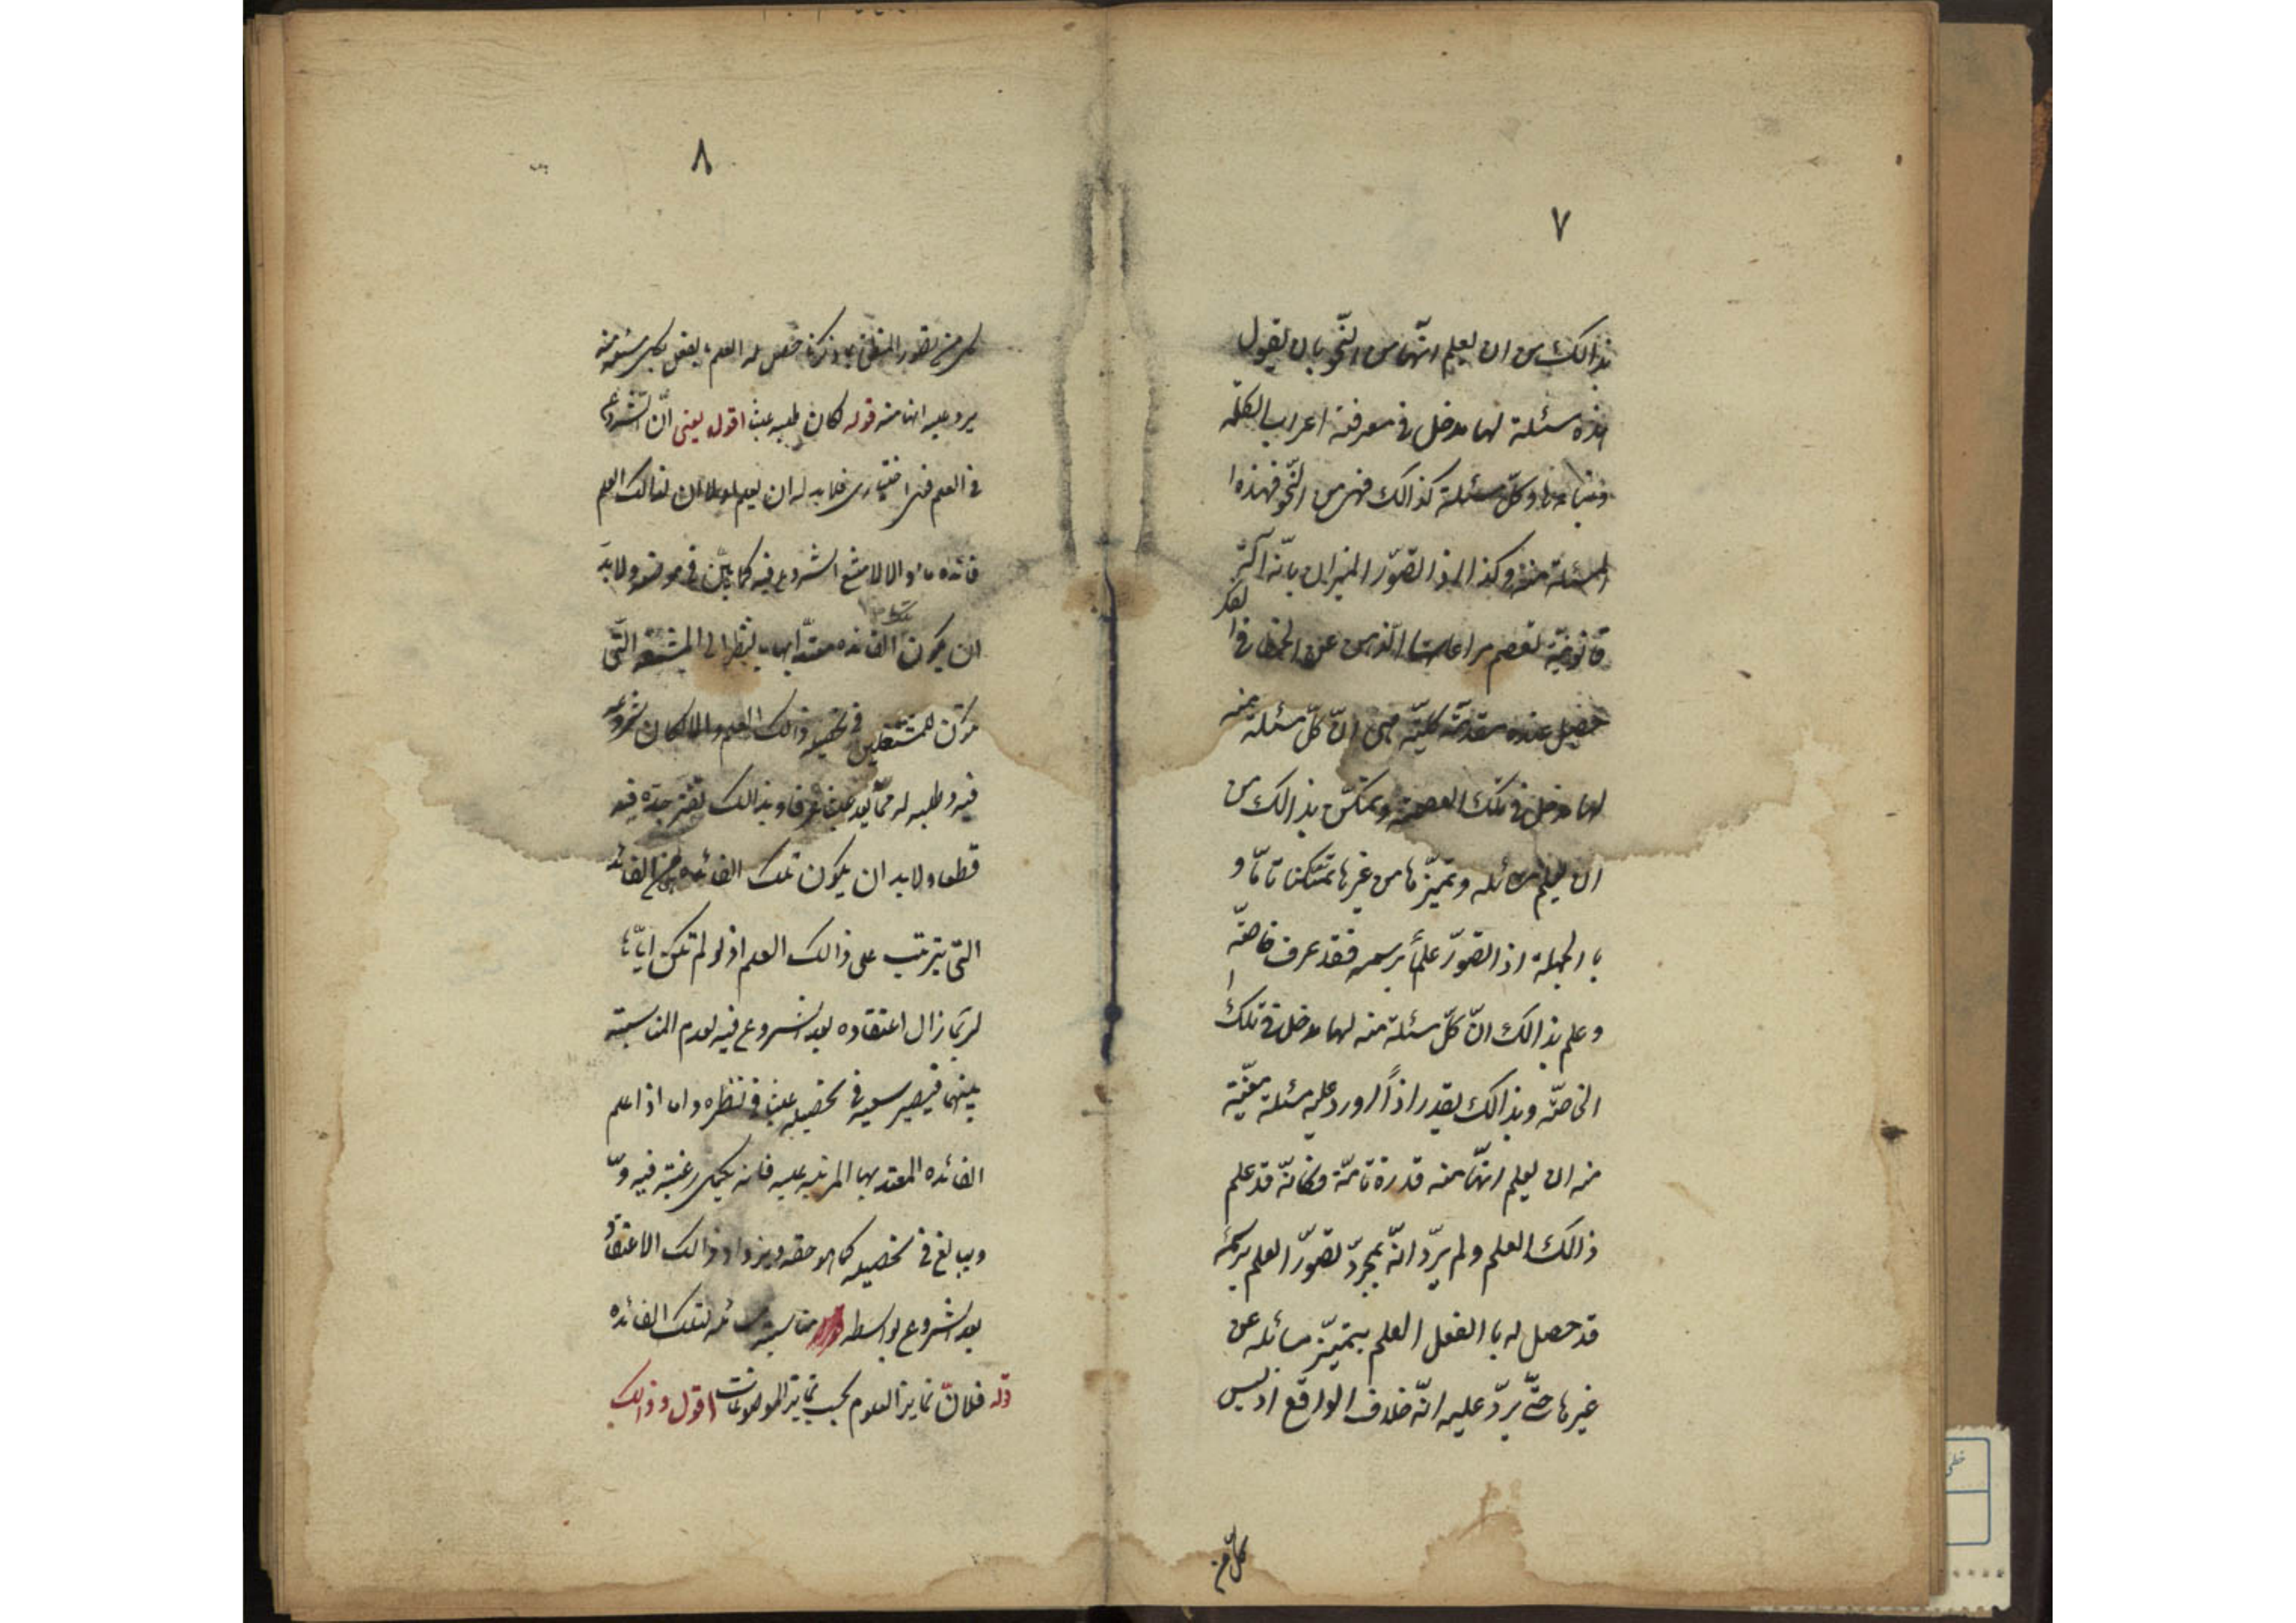 ٧
بذالك من ان يعلم انّها من النّحو بان يقول
هذه مسئلة لها مدخل فى معرفة اعراب الكلمة
وبنائها وكلّ مسئلة كذالك فهى من النّحو فهذه ا
لمسئلة منه وكذا اذا تصوّر الميزان بانّه آلة
قانونيّة تعصم مراعاتها الذهن عن الخطاء فى ا لفكر
حصل عنده مقدمّة كليّة هى انّ كلّ مسئلة منه
لها مدخل فى تلك العصمة وتمكّن بذالك من
ان يعلم مسائله وتميّزها من غيرها تمكنا تامّا و
با الجملة اذا تصوّر علماً برسمه فقد عرف خاصّة
وعلم بذالك انّ كلّ مسئلة منه لها مدخل فى تلك ا
لخاصّة وبذالك يقدر اذاً اورد عليه مسئلة معيّنة
منه ان يعلم انّها منه قدرة تامّة فكانّه قد علم
ذالك العلم ولم يردّ انّه بمجردّ تصوّر العلم برسمه
قد حصل له با الفعل العلم بتميّز مسائله عن
غيرها حتّى يردّ عليه انّه خلاف الواقع اذ ليس
كلّ من
٨
كل من تصور المنطق بما ذكرنا حصل له العلم بالفعل بكل مسئلة منه
يرد عليه انها منه قوله كان طلبه عبثا اقول يعنى انّ الشروع
فى العلم فعل اختيارى فلا بد له ان يعلم اولا ان لذالك العلم
فائده ما والا لامتنع الشروع فيه كما بيّن فى موضعه ولا بدّ
ان يكون الفائده معتدّا بها بالنظر الى المشقة الّتى
تكون للمشتغلين فى تحصيل ذالك العلم والا لكان شروعه
فيه وطلبه له ممّا يعد عبثا عرفا وبذالك يفتر جدّه فيه
قطعا ولا بد ان يكون تلك الفائده هى الفائده
التّى يترتب على ذالك العلم اذ لو لم تكن ايّاها
لربّما زال اعتقاده بعد الشروع فيه لعدم المناسبة
بينهما فيصير سعيه فى تحصيله عبثا فى نظره واما اذا علم
الفائده المعتد بها المرتبة عليه فانه يكمل رغبته فيه
ويبالغ فى تحصيله كما هو حقه ويزداد ذالك الاعتقاد
بعد الشروع بواسطه مناسبة مسائله لتلك الفائده
قوله فلانّ تمايز العلوم بحسب تمايز الموضوعات اقول وذالك